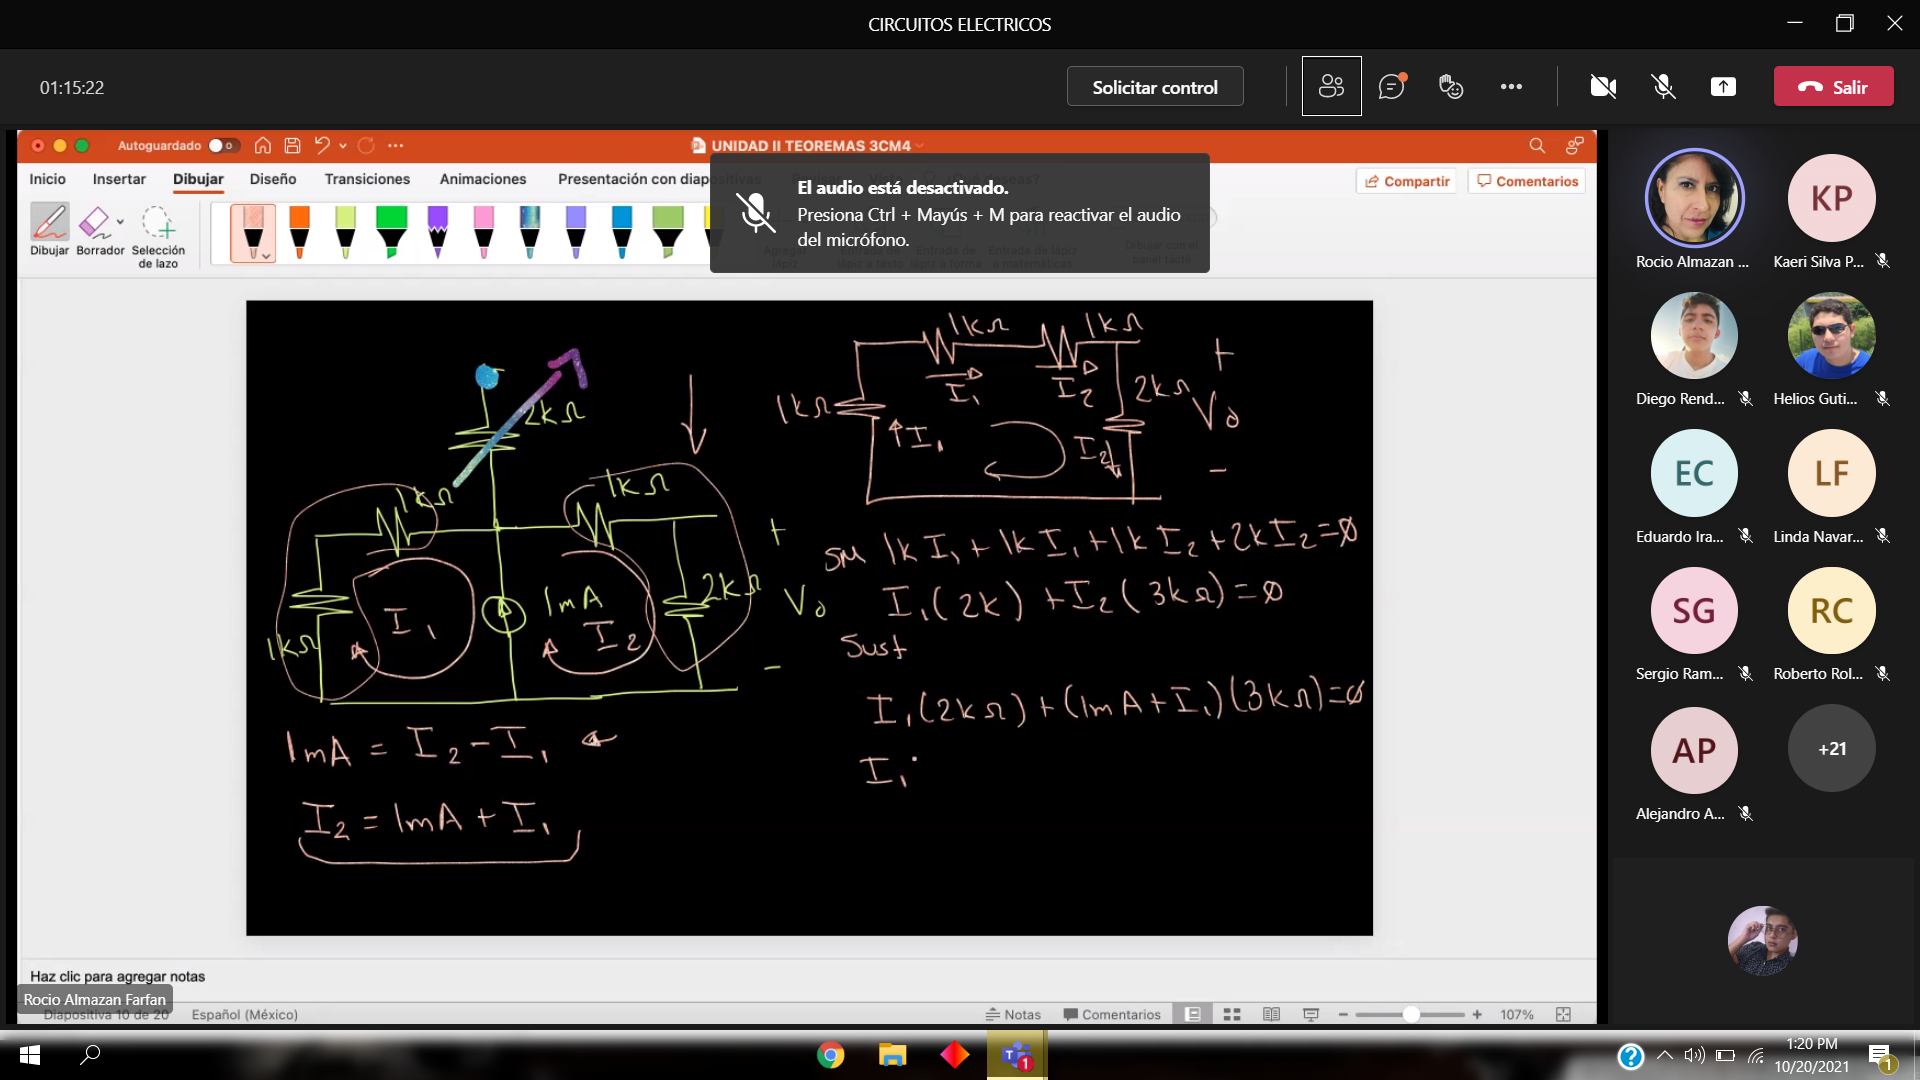 CIRCUITOS ELECTRICOS
01:15:22
Solicitar control
Salir
Autoguardado
UNIDAD II TEOREMAS 3CM4
Inicio
Insertar
Dibujar
Diseño
Transiciones
Animaciones
Presentación con diapositivas
Compartir
Comentarios
El audio está desactivado.
Presiona Ctrl + Mayús + M para reactivar el audio
del micrófono.
Dibujar
Borrador
Selección
de lazo
2kΩ
1kΩ
1kΩ
1kΩ
I₁
1mA
I₂
2kΩ
+
V₀
-
1mA = I₂ - I₁ ←
I₂ = 1mA + I₁
1kΩ
1kΩ
1kΩ
I₁
I₂
2kΩ
+
V₀
-
↑I₁
I₂↓
SM 1k I₁ + 1k I₁ + 1k I₂ + 2k I₂ = ∅
I₁(2k) + I₂(3kΩ) = ∅
Sust
I₁(2kΩ) + (1mA + I₁)(3kΩ) = ∅
I₁
Haz clic para agregar notas
Rocio Almazan Farfan
Diapositiva 10 de 20
Español (México)
Notas
Comentarios
107%
Rocio Almazan ...
KP
Kaeri Silva P...
Diego Rend...
Helios Guti...
EC
Eduardo Ira...
LF
Linda Navar...
SG
Sergio Ram...
RC
Roberto Rol...
AP
Alejandro A...
+21
1:20 PM
10/20/2021
1
1